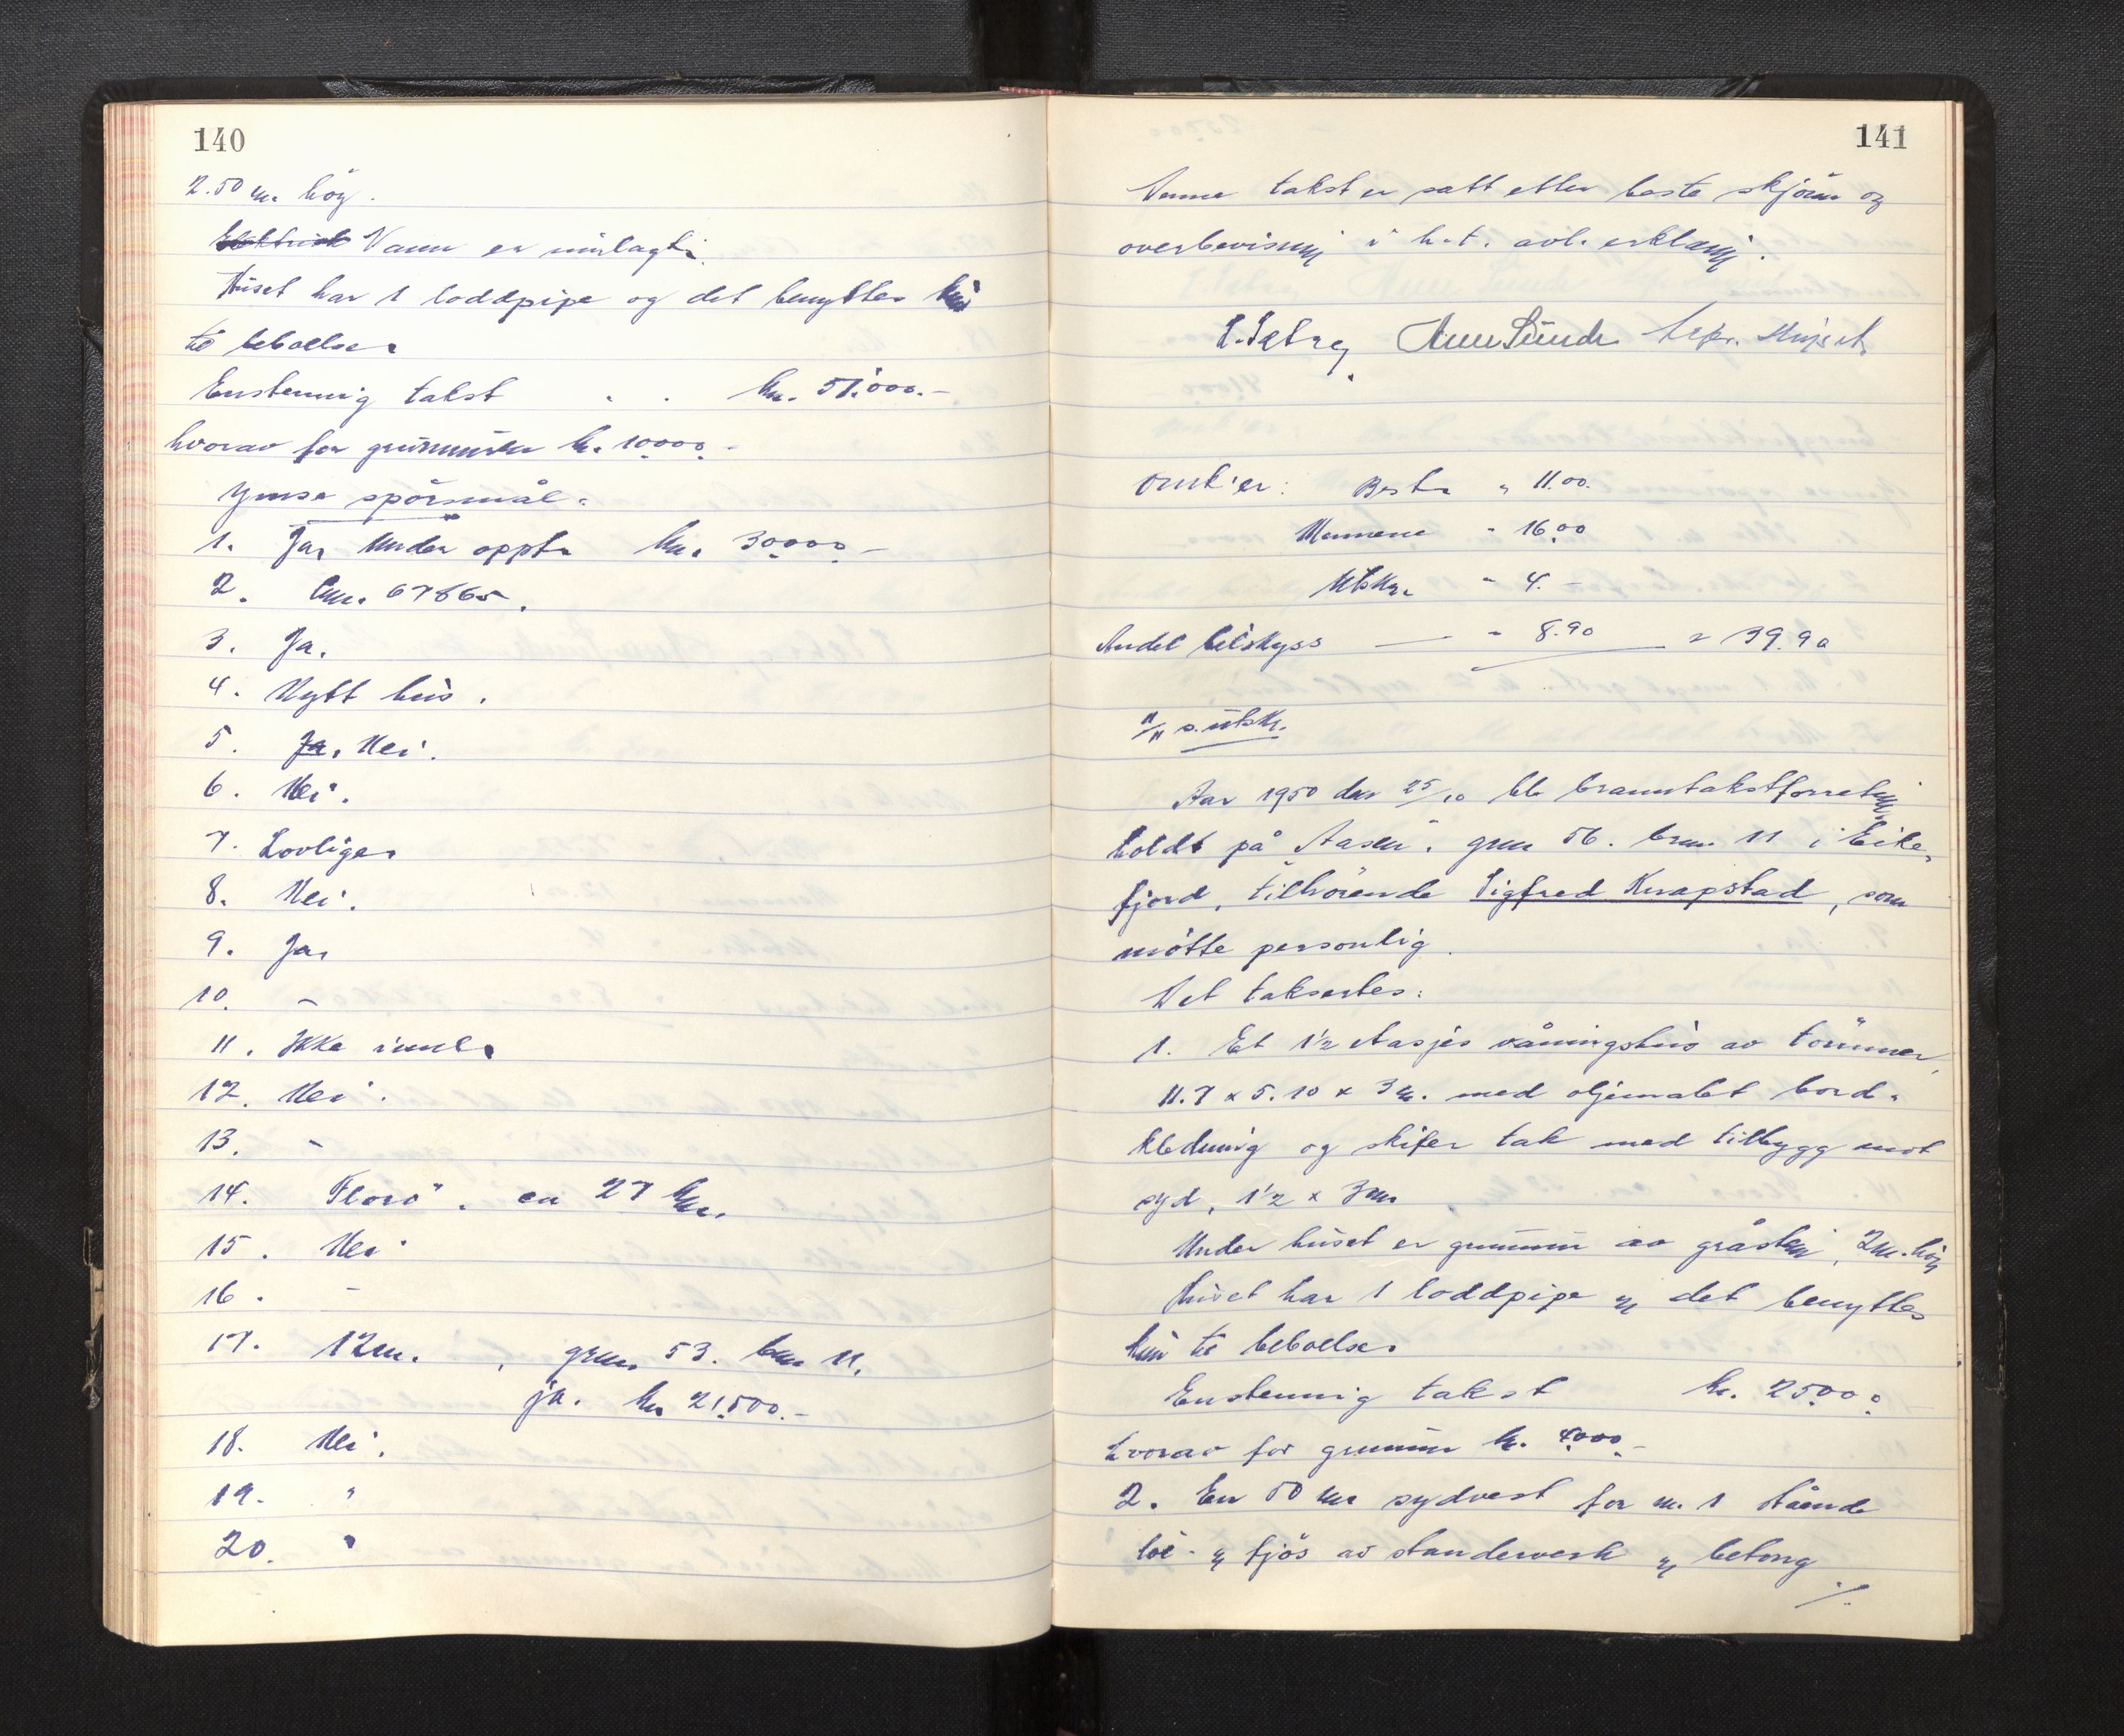 140
2.50 m. høy.
Elektrisk Vann er innlagt.
Huset har 1 loddpipe og det benyttes kun
til beboelse.
Enstemmig takst . . kr. 51.000.-
hvorav for grunnmuren kr. 10.000.-
Ymse spörsmål.
1. Ja, under oppt. kr. 30.000.-
2. Bnr. 67865.
3. Ja.
4. Nytt hus.
5. Ja. Nei.
6. Nei.
7. Lovlige.
8. Nei.
9. Ja.
10. -
11. Ikke innl.
12. Nei.
13. -
14. Florö. ca 27 km.
15. Nei
16. -
17. 12 m. , gnr. 53. bnr 11.
ja. kr 21.500.-
18. Nei.
19. "
20. "
141
Denne takst er satt etter beste skjönn og
overbevisning i h.t. avl. erklæring.
Omk'er: Best. " 11.00.
Mennene " 16.00
Utskr. " 4.-
Andel bilskyss — " 8.90 = 39.90
11/11 s. utskr.
Aar 1950 den 25/10 ble branntakstforretning
holdt på Aasen. gnr 56. bnr. 11 i Eike-
fjord, tilhörende Sigfred Knapstad, som
mötte personlig.
Det taksertes:
1. Et 1½ etasjes våningshus av tömmer,
11.7 x 5.10 x 3 m. med oljemalet bord-
kledning og skifer tak med tilbygg mot
syd, 1½ x 3 m
Under huset er grunnmur av gråstein, 2 m. høy
Huset har 1 loddpipe og det benyttes
kun til beboelse.
Enstemmig takst kr. 25.000
hvorav for grunnmur kr. 4.000.-
2. En 50 m sydvest for nr. 1 stående
löe- og fjös av standerverk og betong
./.